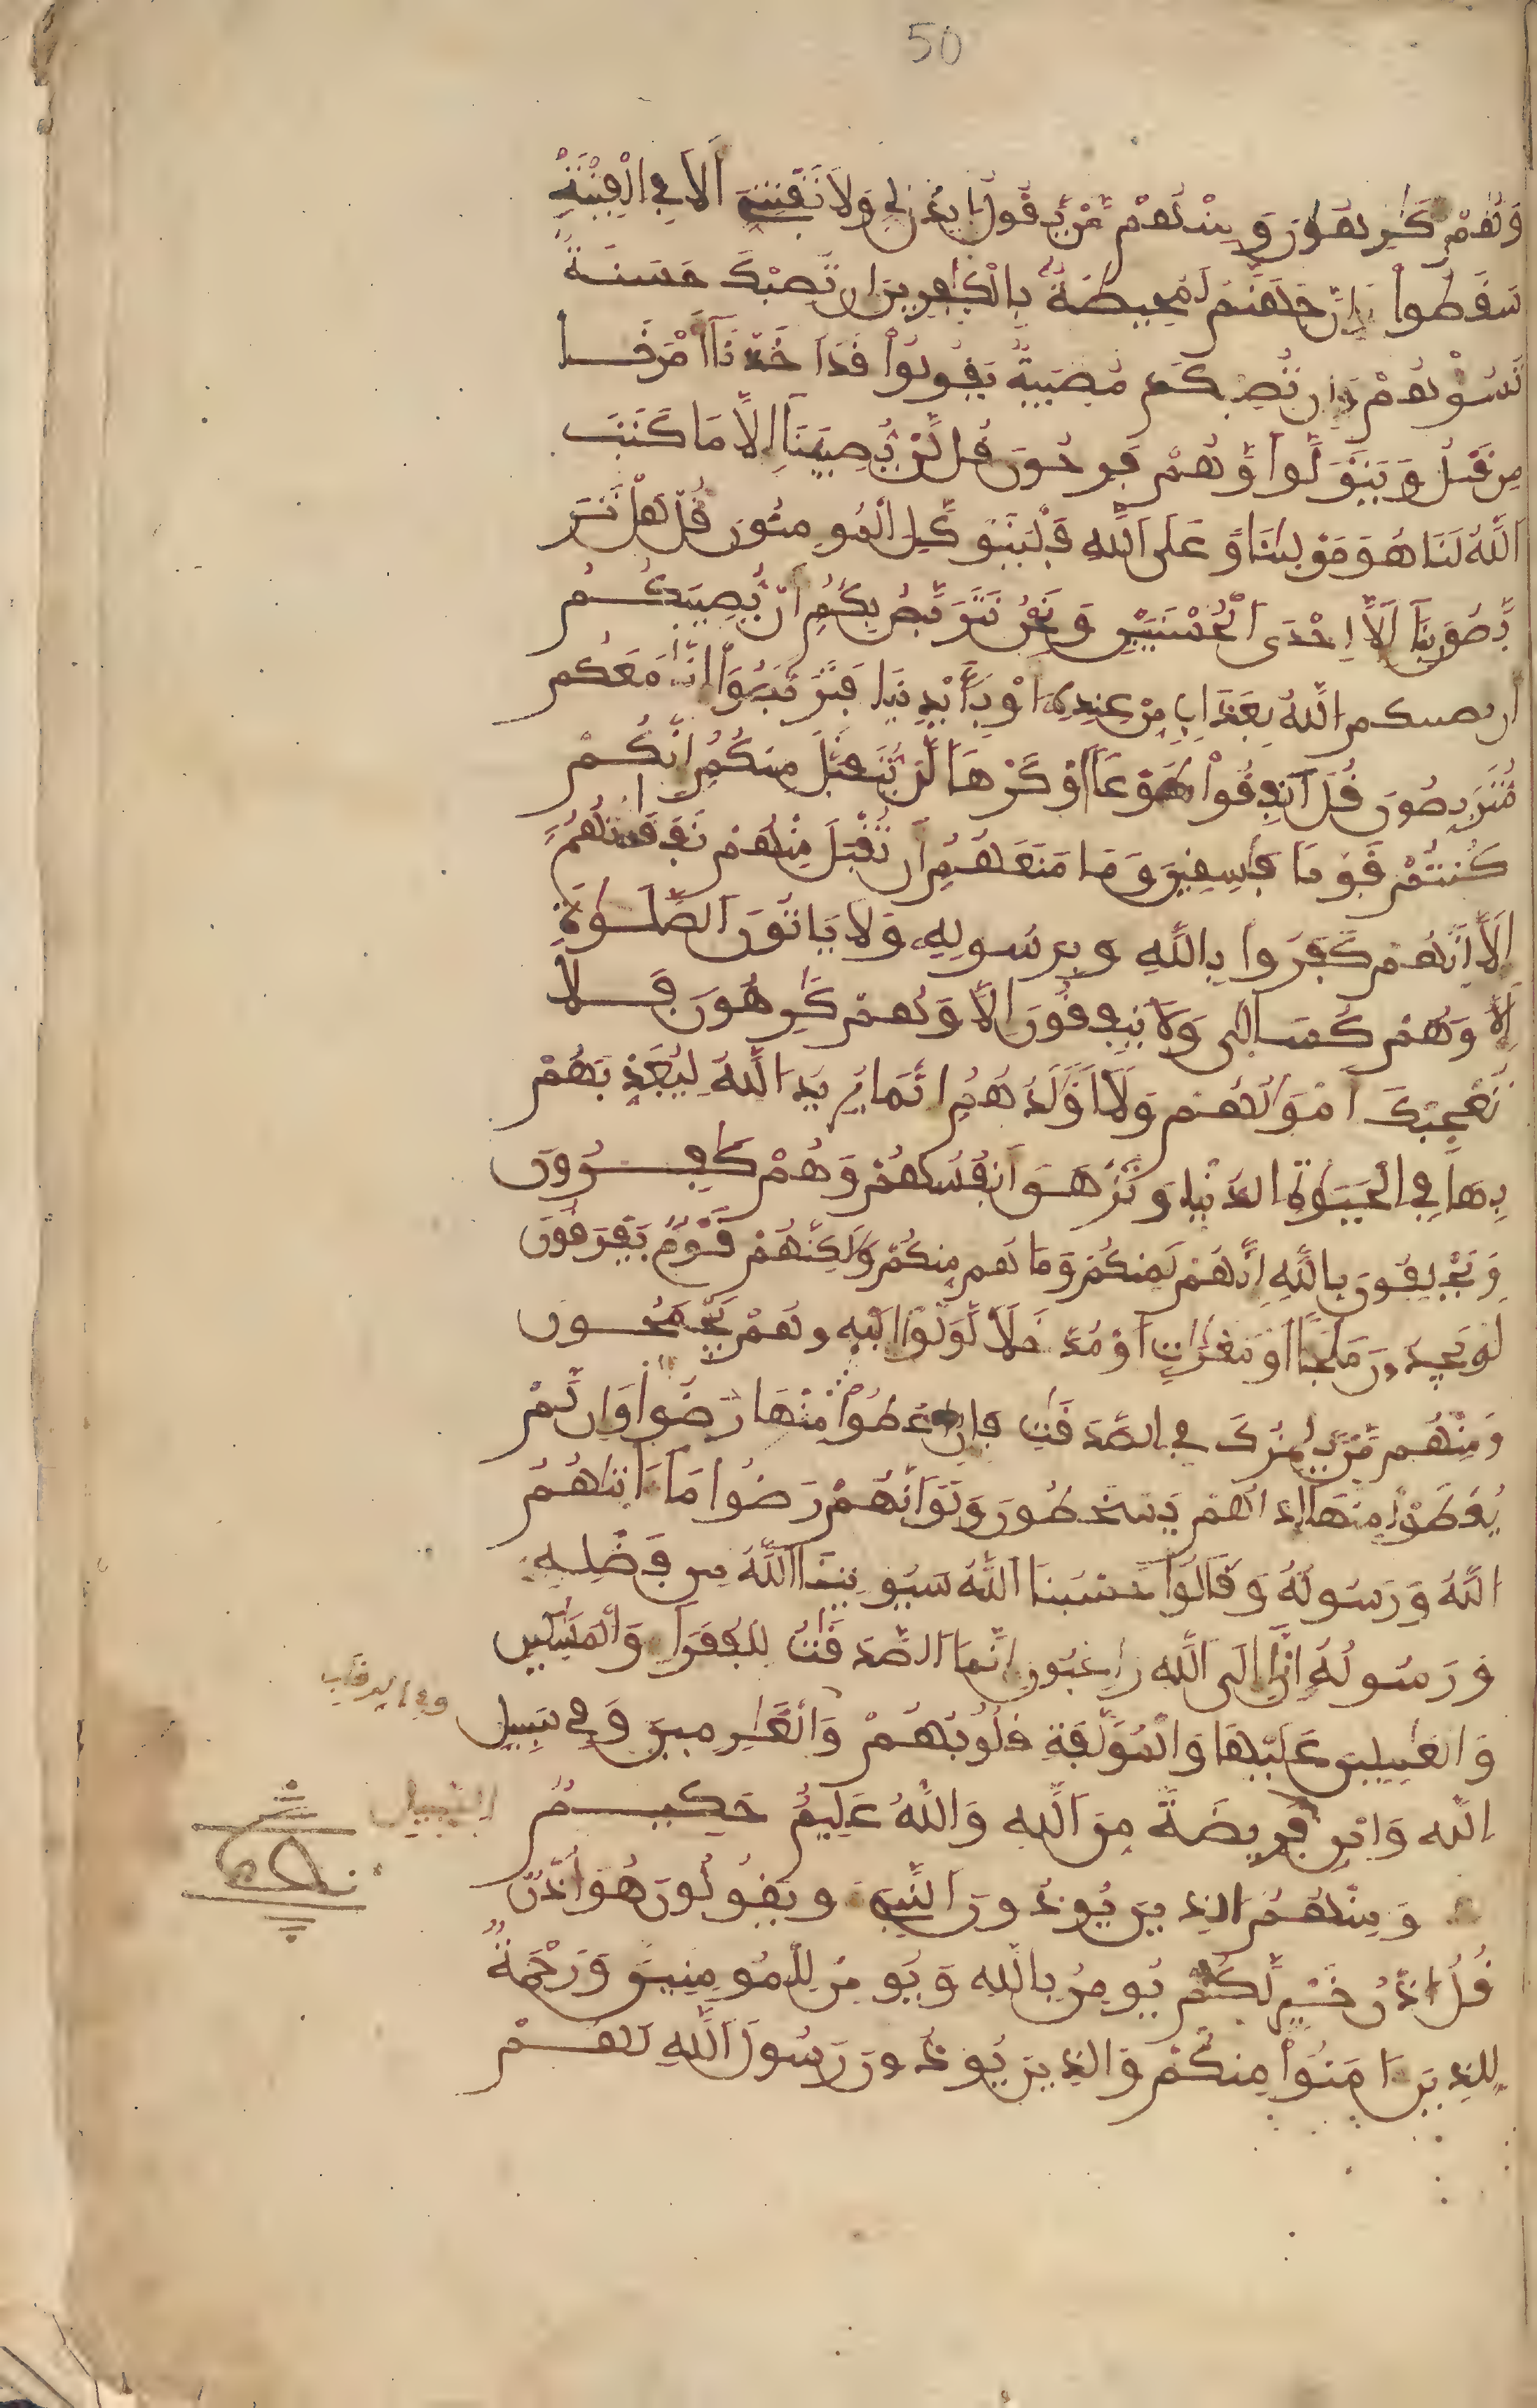 50
وَهُمْ كَٰرِهُونَ وَمِنْهُم مَّنْ يَّقُولُ ايذَن لِّے وَلَا تَفْتِنِّے أَلَا فِے اِلْفِتْنَةِ
سَقَطُواْ وَإِنَّ جَهَنَّمَ لَمُحِيطَةٌ بِالْكٰفِرِينَ إِن تُصِبْكَ حَسَنَةٌ
تَسُؤْهُمْ وَإِن تُصِبْكَ مُصِيبَةٌ يَقُولُواْ قَدَ اَخَذْنَآ أَمْرَنَا
مِن قَبْلُ وَيَتَوَلَّواْ وَّهُمْ فَرِحُونَ قُل لَّنْ يُّصِيبَنَآ إِلَّا مَا كَتَبَ
اَللَّهُ لَنَا هُوَ مَوْلٰىنَا وَعَلَى اَللَّهِ فَلْيَتَوَكَّلِ اِلْمُومِنُونَ قُلْ هَلْ تَرَ
بَّصُونَ بِنَآ إِلَّآ إِحْدَى اَلْحُسْنَيَيْنِ وَنَحْنُ نَتَرَبَّصُ بِكُمُ أَنْ يُّصِيبَكُمُ
أن يصيبكم اللَّهُ بِعَذَابٍ مِّنْ عِندِهِ أَوْ بِأَيْدِينَا فَتَرَبَّصُواْ إِنَّا مَعَكُم
مُّتَرَبِّصُونَ قُلَ اَنفِقُواْ طَوْعًا أَوْ كَرْهًا لَّنْ يُّتَقَبَّلَ مِنكُمُ إِنَّكُمْ
كُنتُمْ قَوْمًا فَٰسِقِينَ وَمَا مَنَعَهُمُ أَن تُقْبَلَ مِنْهُمْ نَفَقَٰتُهُمُ
إِلَّآ أَنَّهُمْ كَفَرُواْ بِاللَّهِ وَبِرَسُولِهِ وَلَا يَاتُونَ اَلصَّلَوٰةَ
إِلَّا وَهُمْ كُسَالٰى وَلَا يُنفِقُونَ إِلَّا وَهُمْ كَٰرِهُونَ فَلَا
تُعْجِبْكَ أَمْوَٰلُهُمْ وَلَآ أَوْلَٰدُهُمُ إِنَّمَا يُرِيدُ اَللَّهُ لِيُعَذِّبَهُمْ
بِهَا فِے اِلْحَيَوٰةِ اِلدُّنْيَا وَتَزْهَقَ أَنفُسُهُمْ وَهُمْ كَٰفِرُونَ
وَيَحْلِفُونَ بِاللَّهِ إِنَّهُمْ لَمِنكُمْ وَمَا هُم مِّنكُمْ وَلَٰكِنَّهُمْ قَوْمٌ يَفْرَقُونَ
لَوْ يَجِدُونَ مَلْجَـًٔا أَوْ مَغَٰرَٰتٍ أَوْ مُدَّخَلًا لَّوَلَّوِاْ اِلَيْهِ وَهُمْ يَجْمَحُونَ
وَمِنْهُم مَّنْ يَّلْمِزُكَ فِے اِلصَّدَقَٰتِ فَإِنُ اعْطُواْ مِنْهَا رَضُواْ وَإِن لَّمْ
يُعْطَوْاْ مِنْهَآ إِذَا هُمْ يَسْخَطُونَ وَلَوَ اَنَّهُمْ رَضُواْ مَآ ءَاتَىٰهُمُ
اللَّهُ وَرَسُولُهُ وَقَالُواْ حَسْبُنَا اللَّهُ سَيُوتِينَا اَللَّهُ مِن فَضْلِهِ
وَرَسُولُهُ إِنَّآ إِلَى اَللَّهِ رَٰغِبُونَ إِنَّمَا اَلصَّدَقَٰتُ لِلْفُقَرَآءِ وَالْمَسَٰكِينِ
وَالْعَٰمِلِينَ عَلَيْهَا وَالْمُؤَلَّفَةِ قُلُوبُهُمْ وَالْغَٰرِمِينَ وَفِے سَبِيلِ
وفي الرقاب
اِللَّهِ وَابْنِ فَرِيضَةً مِّنَ اَللَّهِ وَاللَّهُ عَلِيمٌ حَكِيمٌ
السبيل
وَمِنْهُمُ الذِينَ يُوذُونَ اَلنَّبِےٓءَ وَيَقُولُونَ هُوَ أُذْنٌ
قُلُ اذْنُ خَيْرٍ لَّكُمْ يُومِنُ بِاللَّهِ وَيُومِنُ لِلْمُومِنِينَ وَرَحْمَةٌ
لِّلذِينَ ءَامَنُواْ مِنكُمْ وَالذِينَ يُوذُونَ رَسُولَ اَللَّهِ لَهُمْ